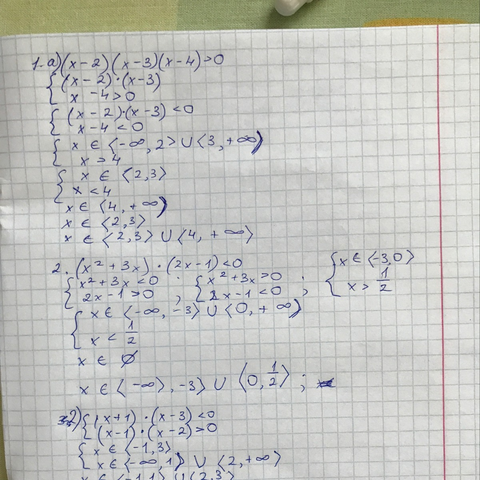 1. a) (x-2)(x-3)(x-4)>0
{ (x-2)·(x-3)
x -4>0
{ (x-2)·(x-3)<0
x-4<0
{ x ∈ ⟨-∞, 2⟩ ∪ ⟨3, +∞)
x > 4
{ x ∈ ⟨2,3⟩
x < 4
x ∈ ⟨4, +∞)
x ∈ ⟨2,3⟩
x ∈ ⟨2,3⟩ ∪ ⟨4, +∞⟩
2. (x²+3x)·(2x-1)<0
{ x²+3x<0 2x-1>0 ; { x²+3x>0 2x-1<0 ; { x ∈ ⟨-3,0⟩ x > 1/2
{ x ∈ ⟨-∞, -3⟩ ∪ ⟨0, +∞)
x < 1/2
x ∈ ∅
x ∈ ⟨-∞⟩, -3⟩ ∪ ⟨0, 1/2⟩ ;
2) { (x+1)·(x-3)<0
(x-1)·(x-2)>0
{ x ∈ ⟨-1,3⟩
x ∈ ⟨-∞, 1⟩ ∪ ⟨2, +∞⟩
x ∈ ⟨-1,1⟩ ∪ ⟨2,3⟩